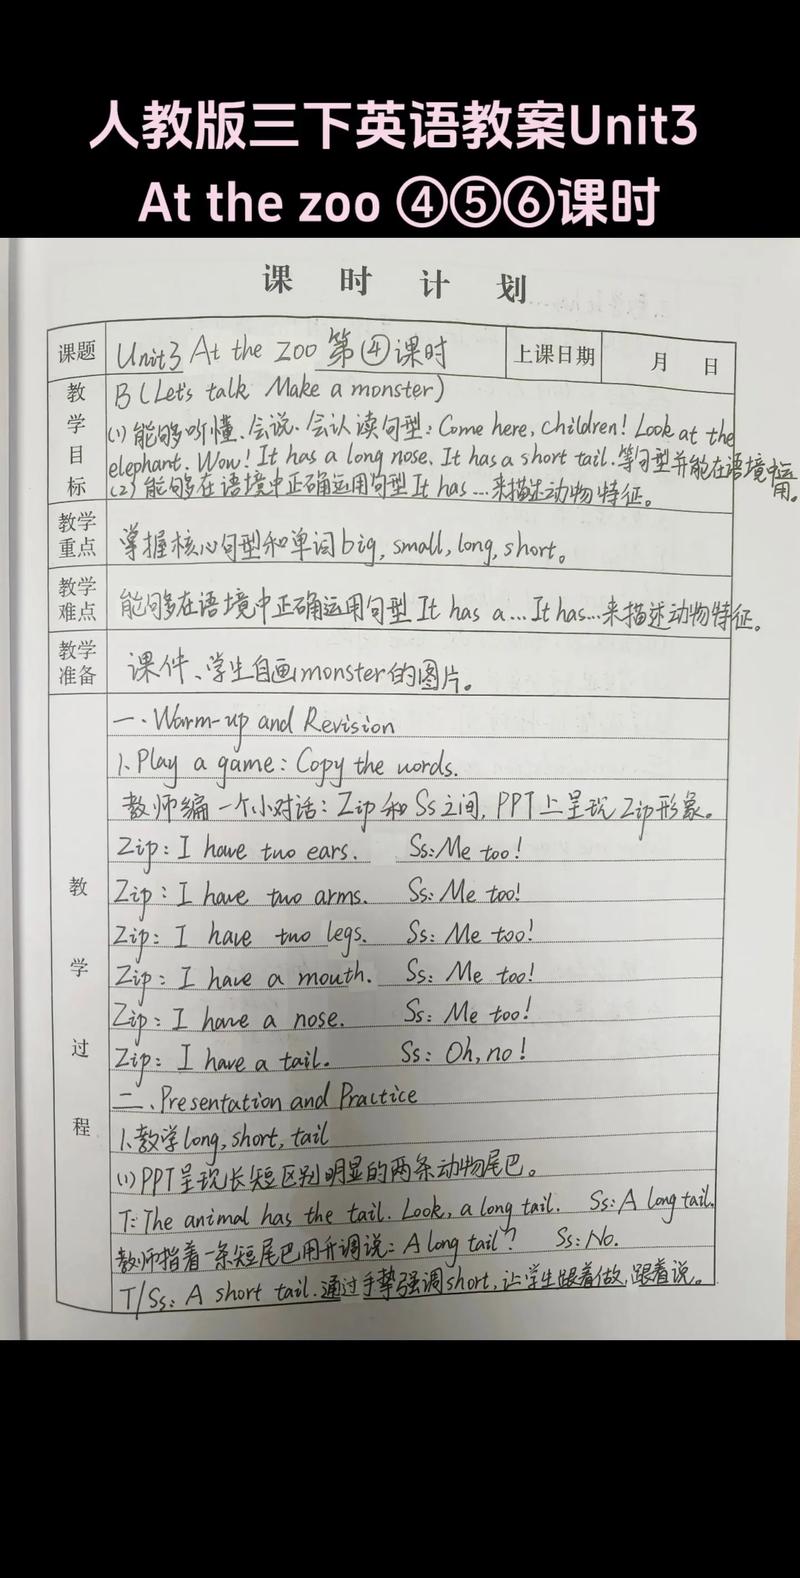 人教版三下英语教案Unit3
At the zoo ④⑤⑥课时
课 时 计 划
课题 Unit3 At the zoo 第④课时 上课日期 月 日
教学目标
B (Let's talk Make a monster)
(1) 能够听懂、会说、会认读句型: Come here, children! Look at the
elephant. Wow! It has a long nose. It has a short tail. 等句型并能在语境中运用。
(2) 能够在语境中正确运用句型 It has ... 来描述动物特征。
教学重点 掌握核心句型和单词 big, small, long, short。
教学难点 能够在语境中正确运用句型 It has a ... It has... 来描述动物特征。
教学准备 课件、学生自画monster的图片。
教学过程
一、Warm-up and Revision
1. Play a game: Copy the words.
教师编一个小对话: Zip 和 Ss 之间, PPT上呈现 Zip形象。
Zip: I have two ears. Ss: Me too!
Zip: I have two arms. Ss: Me too!
Zip: I have two legs. Ss: Me too!
Zip: I have a mouth. Ss: Me too!
Zip: I have a nose. Ss: Me too!
Zip: I have a tail. Ss: Oh, no!
二、Presentation and Practice
1. 教学long, short, tail
(1) PPT呈现长短区别明显的两条动物尾巴。
T: The animal has the tail. Look, a long tail. Ss: A long tail.
教师指着一条短尾巴用升调说: A long tail? Ss: No.
T/Ss: A short tail. 通过手势强调short, 让学生跟着做, 跟着说。